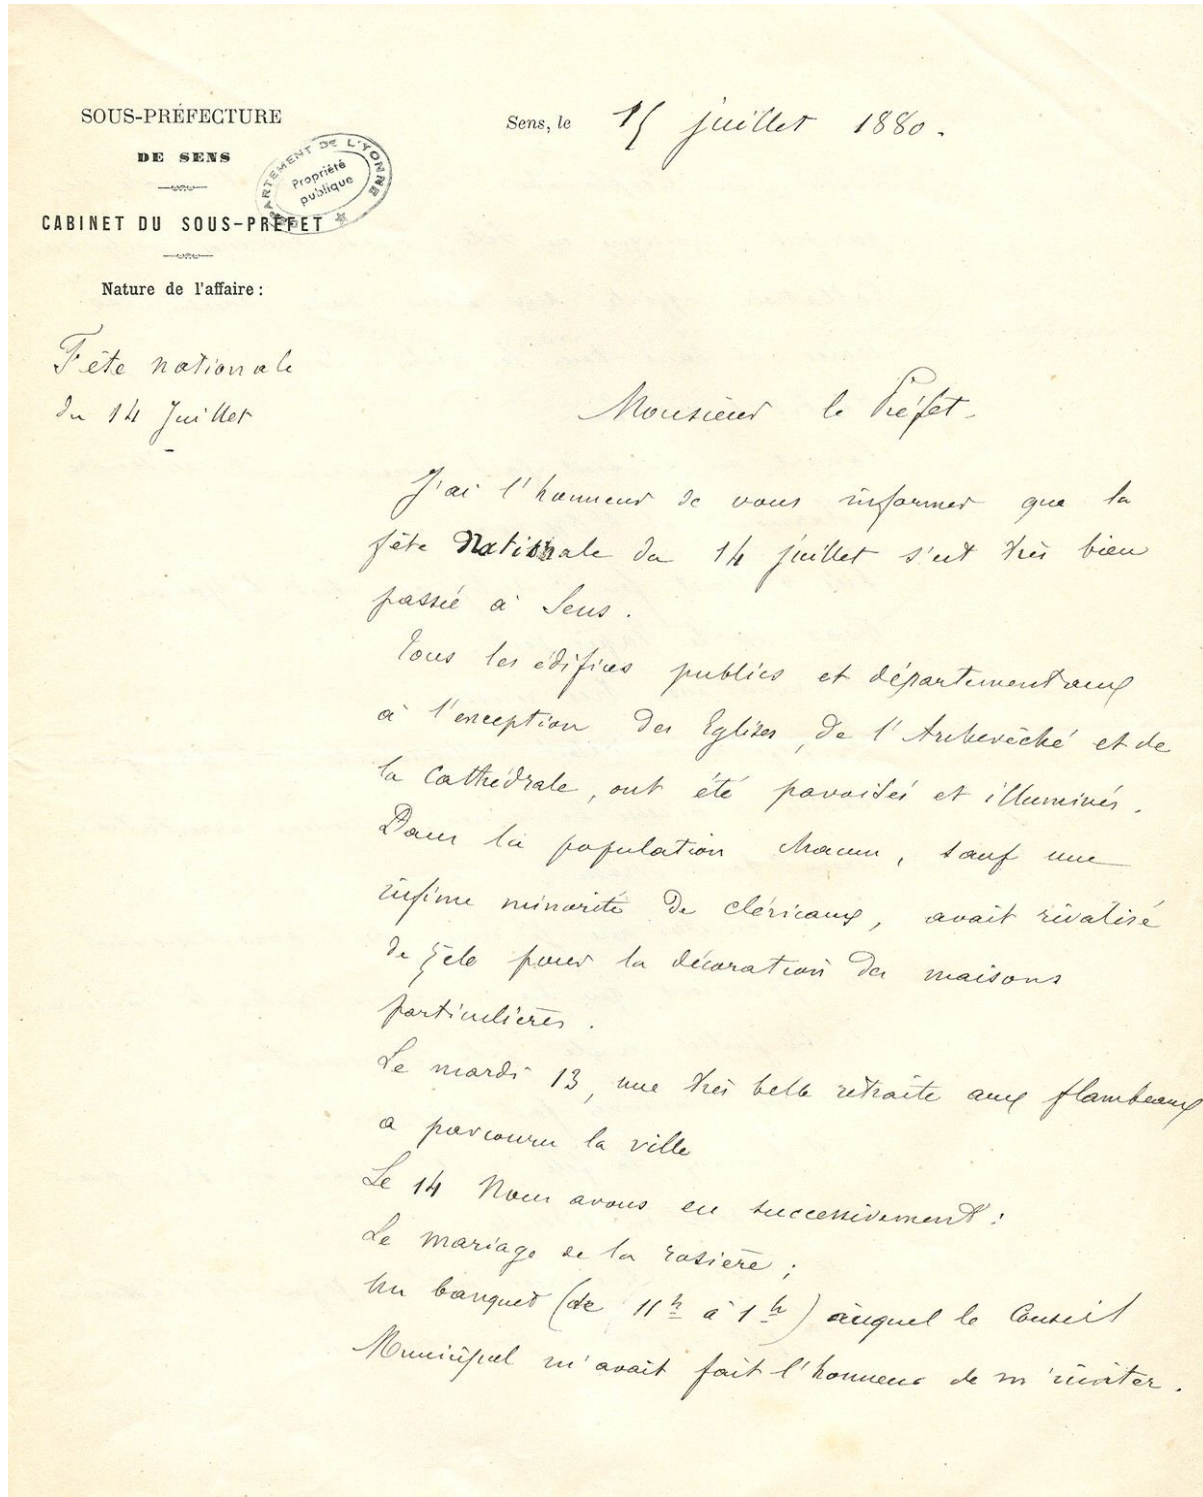 SOUS-PRÉFECTURE
DE SENS
CABINET DU SOUS-PRÉFET
Nature de l'affaire :
Fête nationale
du 14 Juillet
DÉPARTEMENT DE L'YONNE
Propriété
publique
Sens, le 15 juillet 1880.
Monsieur le Préfet.
J'ai l'honneur de vous informer que la
fête Nationale du 14 juillet s'est très bien
passée à Sens.
Tous les édifices publics et départementaux
à l'exception des Eglises, de l'Archevêché et de
la Cathédrale, ont été pavoisés et illuminés.
Dans la population chacun, sauf une
infime minorité de cléricaux, avait rivalisé
de zèle pour la décoration des maisons
particulières.
Le mardi 13, une très belle retraite aux flambeaux
a parcouru la ville
Le 14 Nous avons eu successivement :
Le mariage de la rosière ;
Un banquet (de 11h à 1h) auquel le Conseil
Municipal m'avait fait l'honneur de m'inviter.